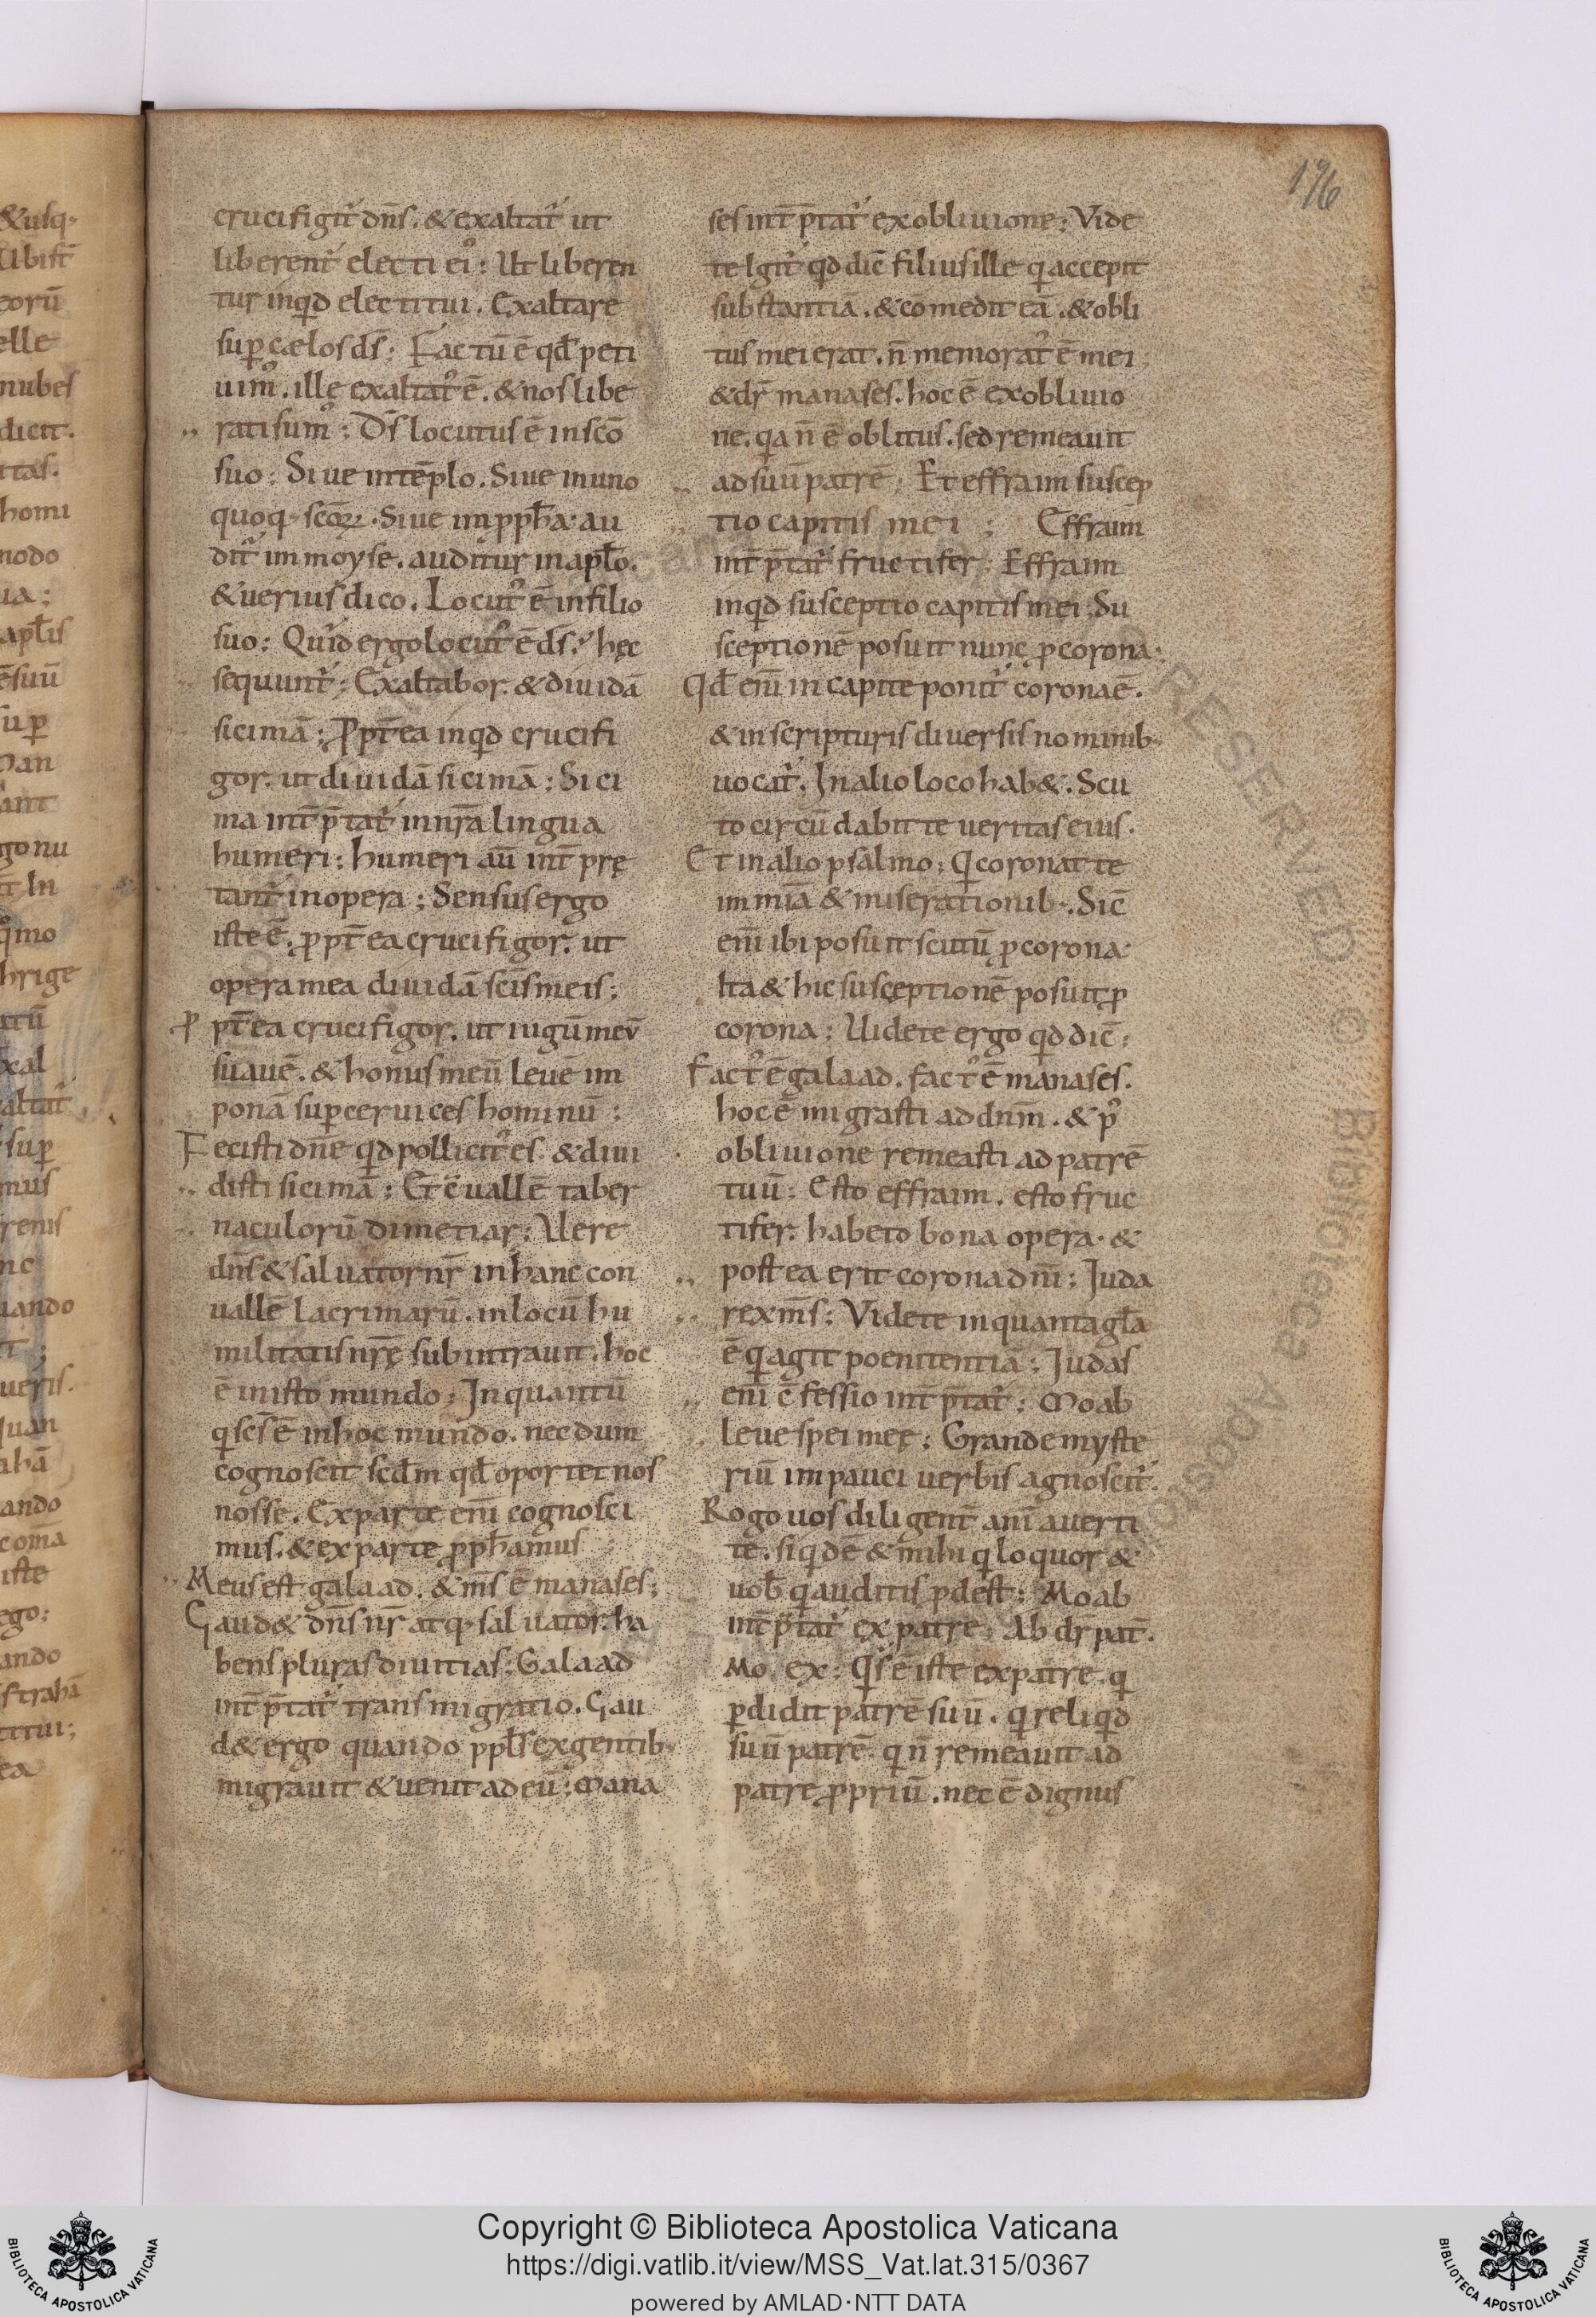 196
crucifigit᷑ dn̄s. & exaltat᷑ ut
liberent᷑ electi ei᷒ : Ut liberen
tur inqd electi tui. Exaltare
sup cælos ds̄ : Factū ē qđ peti
uim᷒. ille exaltat᷒ ē. & nos libe
rati sum᷒ : Ds̄ locutus ē in scō
suo : Siue in tēplo. Siue in uno
quoq· scōꝝ. Siue in ꝓph̄a· au
dit᷑ in moyse. auditur in apl̄o.
& uerius dico. Locut᷒ ē in filio
suo : Quid ergo locut᷒ ē ds̄? hęc
sequunt᷑ : Exaltabor. & diuidā
sicimā : Ꝓpt̄ea inqd crucifi
gor. ut diuidā sicimā : Sici
ma int̄p̄tat᷑ in nr̄a lingua
humeri : humeri au̅ int̄ prę
tant᷑ in opera ; Sensus ergo
iste ē. ꝓpt̄ea crucifigor. ut
opera mea diuidā scīs meis ;
Ꝓ pt̄ea crucifigor. ut iugū meū
suauē. & honus meū leuē im
ponā suꝑ ceruices hominū :
Fecisti dn̄e qd pollicit᷒ es. & diui
disti sicimā : Et c̄uallē taber
naculorū dimetiar : Uere
dn̄s & saluator nr̄ in hanc con
uallē lacrimarū. in locū hu
militatis nr̄ę subintrauit. hoc
ē in isto mundo : In quantū
q scs̄ ē in hoc mundo. necdum
cognoscit scđm qđ oportet nos
nosse. Ex parte eni̅ cognosci
mus. & ex parte ꝓph̄amus
Meus est galaad. & ms̄ ē manases ;
Gaud& dn̄s nr̄ atq· saluator. ha
bens pluras diuitias : Galaad
int̄p̄tat᷑ transmigratio. Gau
d& ergo quando ppl̄s ex gentib·
migrauit & uenit ad eū ; Mana
ses int̄p̄tat᷑ ex obliuione : Vide
te lgit᷑ qd dic̄ filius ille q accepit
substantiā. & comedit eā. & obli
tus mei erat. n̄ memorat᷒ ē mei
& dr̄ manases. hoc ē ex obliuio
ne. qa n̄ ē oblitus. sed remeauit
ad suū patrē : Et effraim suscep
tio capitis mei ; Effraim
int̄p̄tat᷑ fructifer : Effraim
inqd susceptio capitis mei : Su
sceptionē posuit nunc ꝓ corona·
Qđ eni̅ in capite ponit᷑ corona ē.
& in scripturis diuersis nominib·
uocat᷑. In alio loco hab&. Scu
to circūdabit te ueritas eius.
Et in alio psalmo : Q coronat te
in mīa & miserationib·. Sic̄
eni̅ ibi posuit scutū ꝓ corona·
Ita & hic susceptionē posuit ꝓ
corona : Uidete ergo qd dic̄ :
Fact᷒ ē galaad. fact᷒ ē manases.
hoc ē migrasti ad dn̄m. & p᷒
obliuione remeasti ad patrē
tuū : Esto effraim. esto fruc
tifer. habeto bona opera. &
postea erit corona dni̅ : Juda
rex ms̄ : Videte in quanta gl̄a
ē q agit poenitentiā : Judas
eni̅ c̄fessio int̄p̄tat᷑ ; Moab
leue spei meę : Grande myste
riū in pauci uerbis agnoscit᷑.
Rogo uos diligent̄ ani̅ auerti
te. siqdē & mihi q loquor &
uob̄ q auditis ꝓdest : Moab
int̄p̄tat᷑ ex patre : Ab dr̄ pat̄.
Mo. ex : Qs ē iste ex patre. q
ꝑdidit patrē suū. q reliqd
suū patrē. q n̄ remeauit ad
patre ꝓpriū. nec ē dignus
Copyright © Biblioteca Apostolica Vaticana
https://digi.vatlib.it/view/MSS_Vat.lat.315/0367
powered by AMLAD·NTT DATA